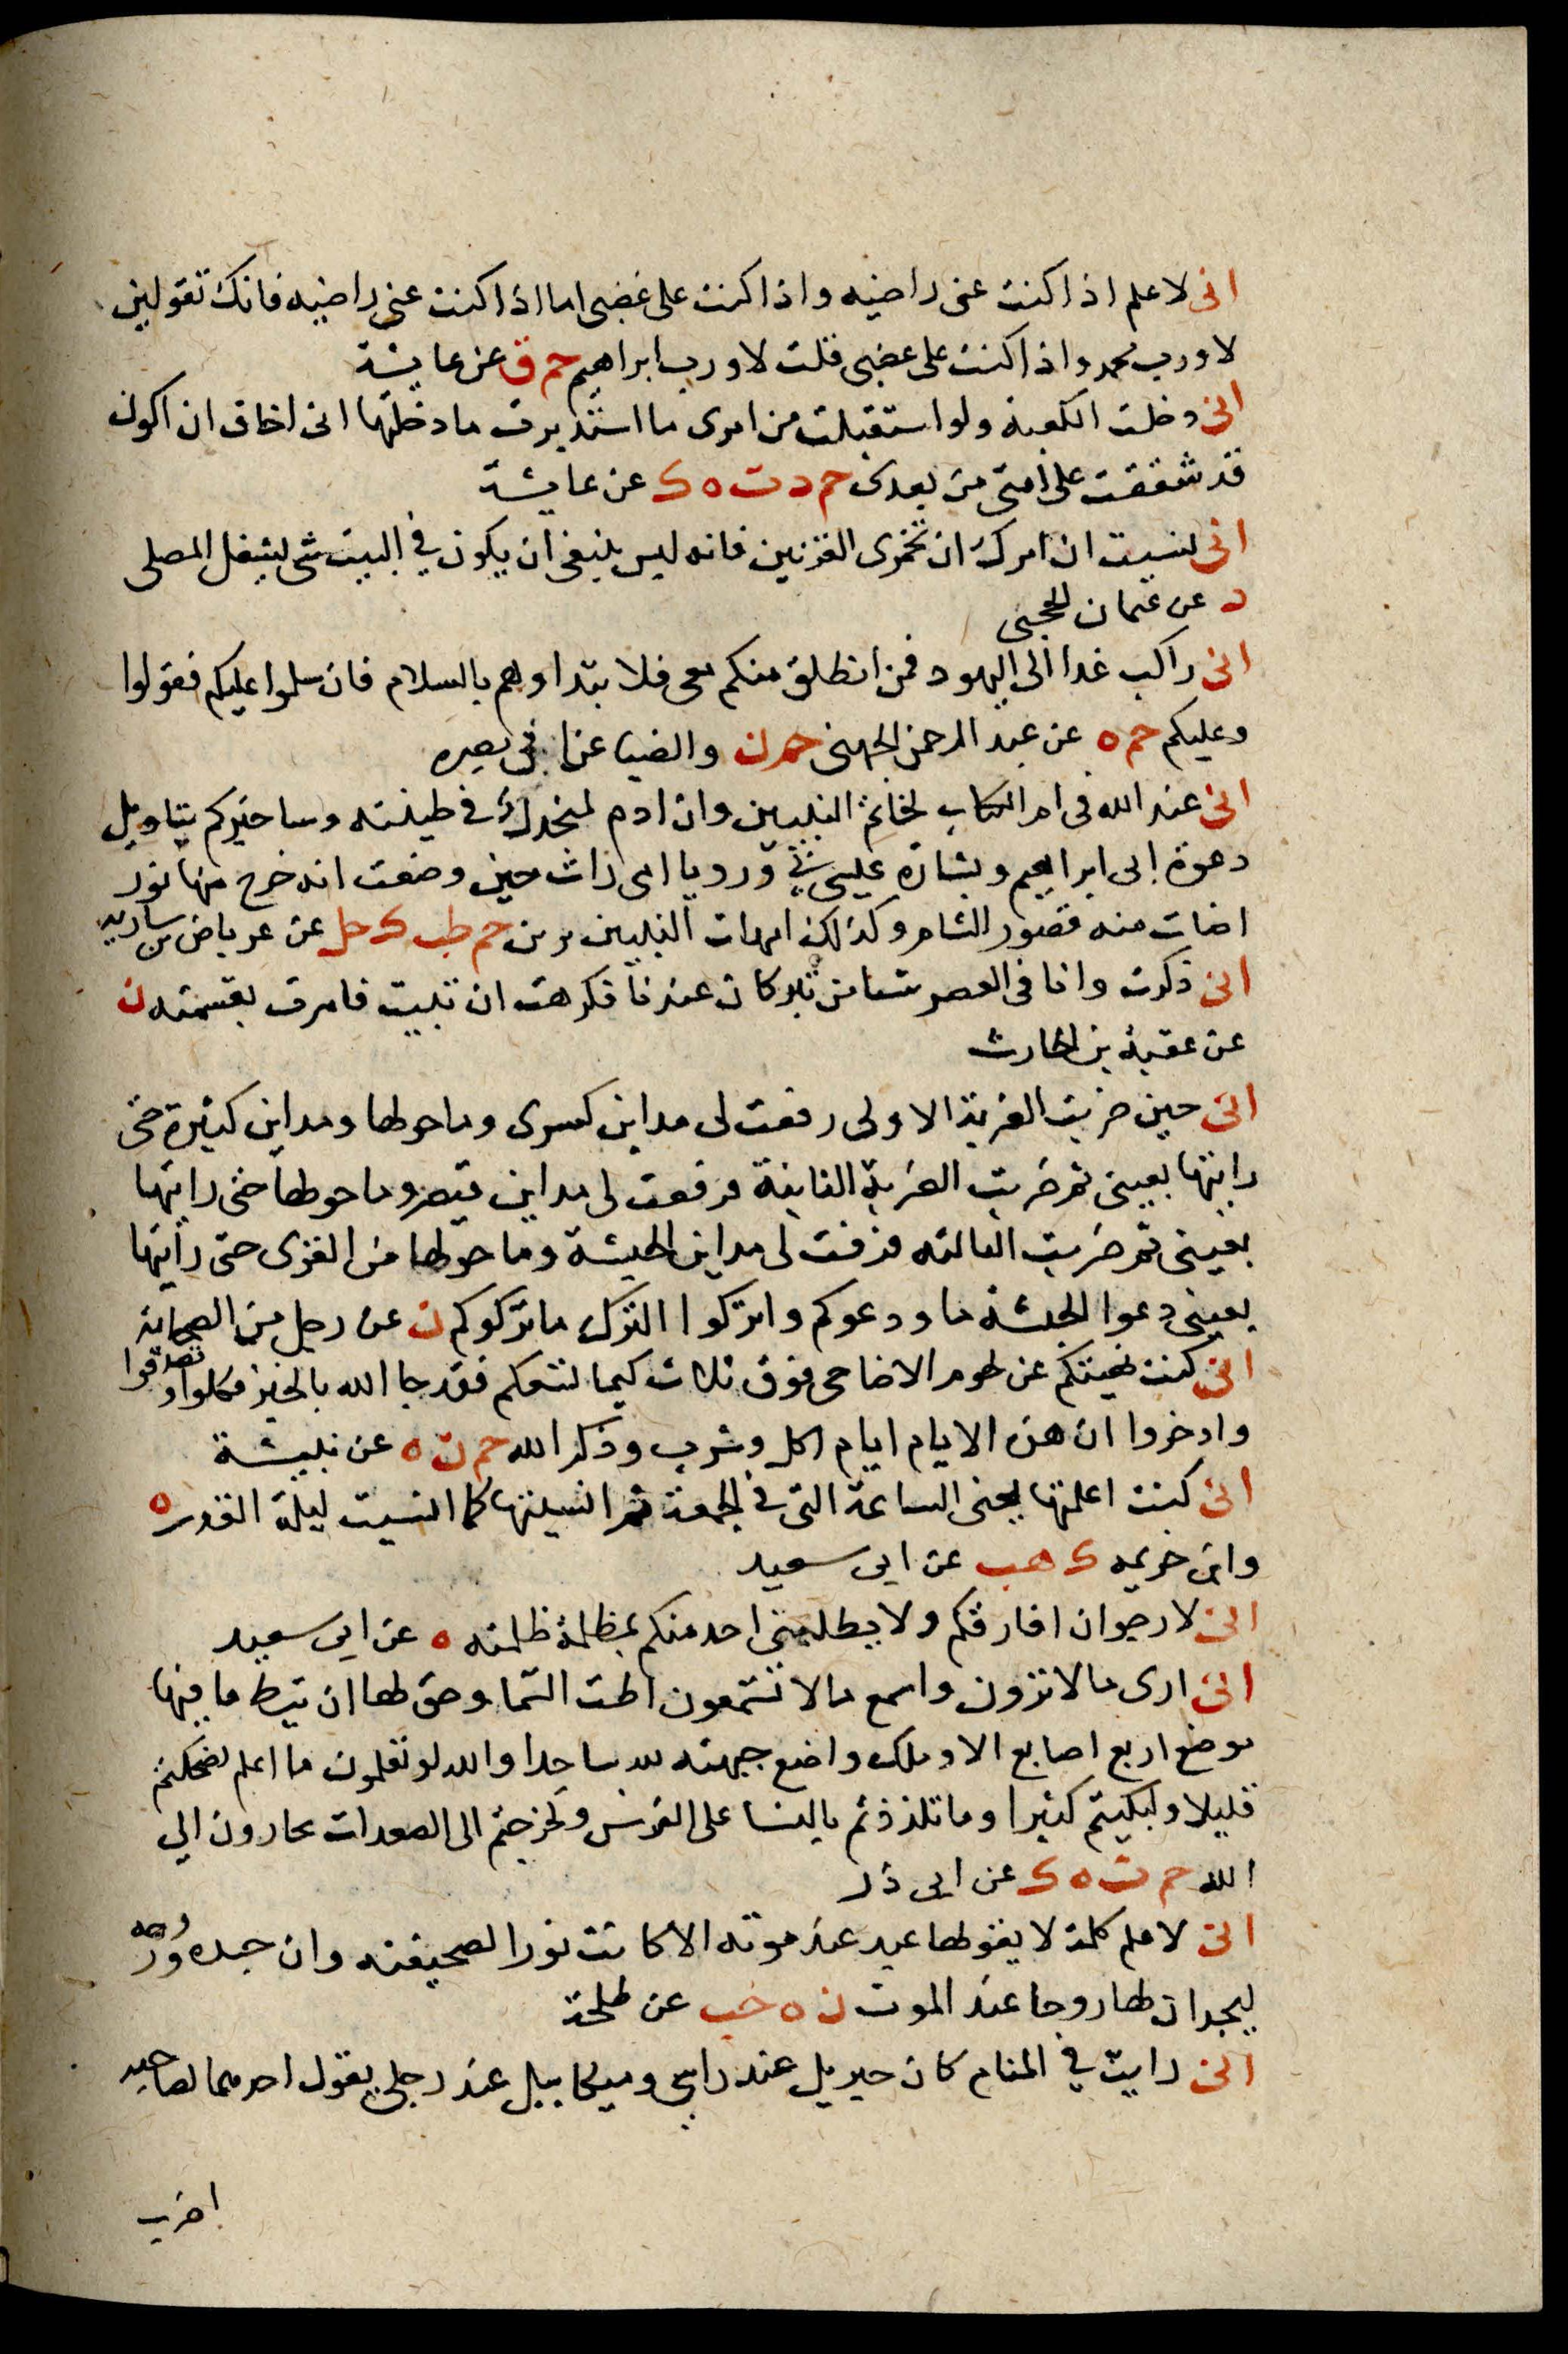 انى لاعلم اذا كنت عنى راضيه واذا كنت على غضبى اما اذا كنت عنى راضيه فانك تقولين
لا ورب محمد واذا كنت على غضبى قلت لا ورب ابراهيم حم ق عن عايشة
انى دخلت الكعبة ولو استقبلت من امرى ما استدبرت ما دخلتها انى اخاف ان اكون
قد شققت على امتى من بعدى حم د ت ه ك عن عايشة
انى نسيت ان امرك ان تخمرى القرنين فانه ليس ينبغى ان يكون في البيت شى يشغل المصلى
د عن عثمان الحجبى
انى راكب غدا الى اليهود فمن انطلق منكم معى فلا تبداوهم بالسلام فان سلموا عليكم فقولوا
وعليكم حم ه عن عبد الرحمن الجهنى حم ن والضيا عن ابى بصره
انى عند الله فى ام الكتاب لخاتم النبيين وان ادم لمنجدل في طينته وساخبركم بتاويل
دعوة ابى ابراهيم وبشارة عيسى بى ورويا امى رات حين وضعت انه خرج منها نور
اضات منه قصور الشام وكذلك امهات النبيين يرين حم طب ك حل عن عرباض بن ساريه
انى ذكرت وانا فى العصر شيا من تبر كان عندنا فكرهت ان تبيت فامرت بقسمته ن
عن عقبة بن الحارث
انى حين ضربت الضربة الاولى رفعت لى مداين كسرى وما حولها ومداين كثيرة حتى
رايتها بعينى ثم ضربت الضربة الثانية فرفعت لى مداين قيصر وما حولها حتى رايتها
بعينى ثم ضربت الثالثه فرفعت لى مداين الحبشة وما حولها من القرى حتى رأيتها
بعينى دعوا الحبشة ما ودعوكم واتركوا الترك ما تركوكم ن عن رجل من الصحابة
انى كنت نهيتكم عن لحوم الاضاحى فوق ثلاث كيما تسعكم فقد جا الله بالخير فكلوا وتصدقوا
وادخروا ان هذه الايام ايام اكل وشرب وذكر الله حم ن ه عن نبيشة
انى كنت اعلمتها يعنى الساعة التى في الجمعة ثم انسيتها كما انسيت ليلة القدر ه
وابن خزيمه ك هب عن ابى سعيد
انى لارجو ان افارقكم ولا يطلبنى احد منكم بمظلمة ظلمته ه عن ابى سعيد
انى ارى ما لا ترون واسمع ما لا تسمعون اطت السما وحق لها ان تيط ما فيها
موضع اربع اصابع الا وملك واضع جبهته لله ساجدا والله لو تعلمون ما اعلم لضحكتم
قليلا ولبكيتم كثيرا وما تلذذتم بالنسا على الفرش ولخرجتم الى الصعدات تجارون الى
الله حم ت ه ك عن ابى ذر
انى لاعلم كلمة لا يقولها عبد عند موته الا كانت نورا لصحيفته وان جسده وروحه
ليجدان لها روحا عند الموت ن ه حب عن طلحة
انى رايت في المنام كان جبريل عند راسى وميكاييل عند رجلى يقول احدهما لصاحبه
اضرب